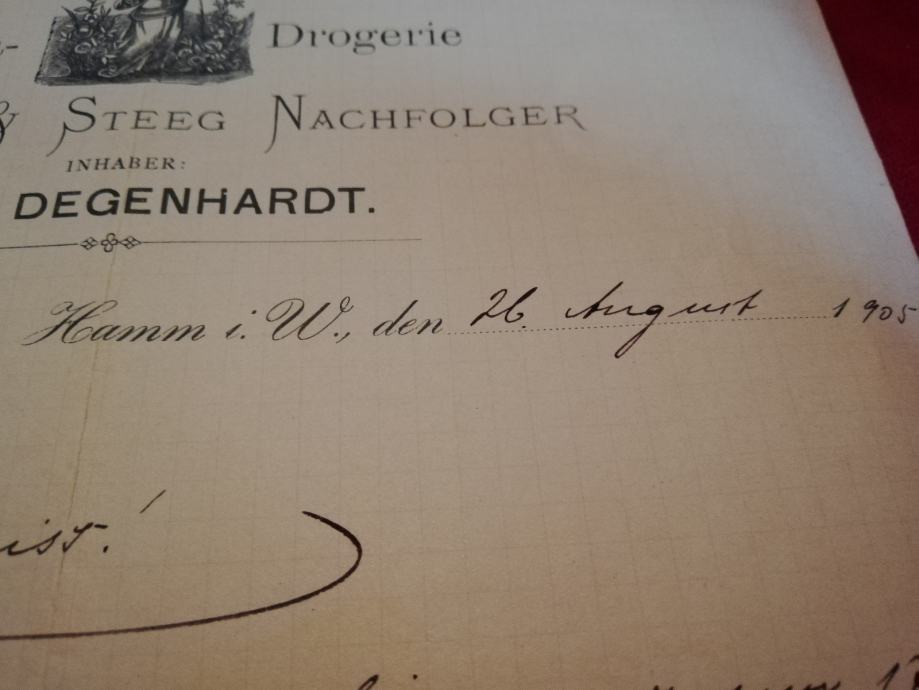 Drogerie
& STEEG NACHFOLGER
INHABER:
DEGENHARDT.
Hamm i. W., den 26. August 1905